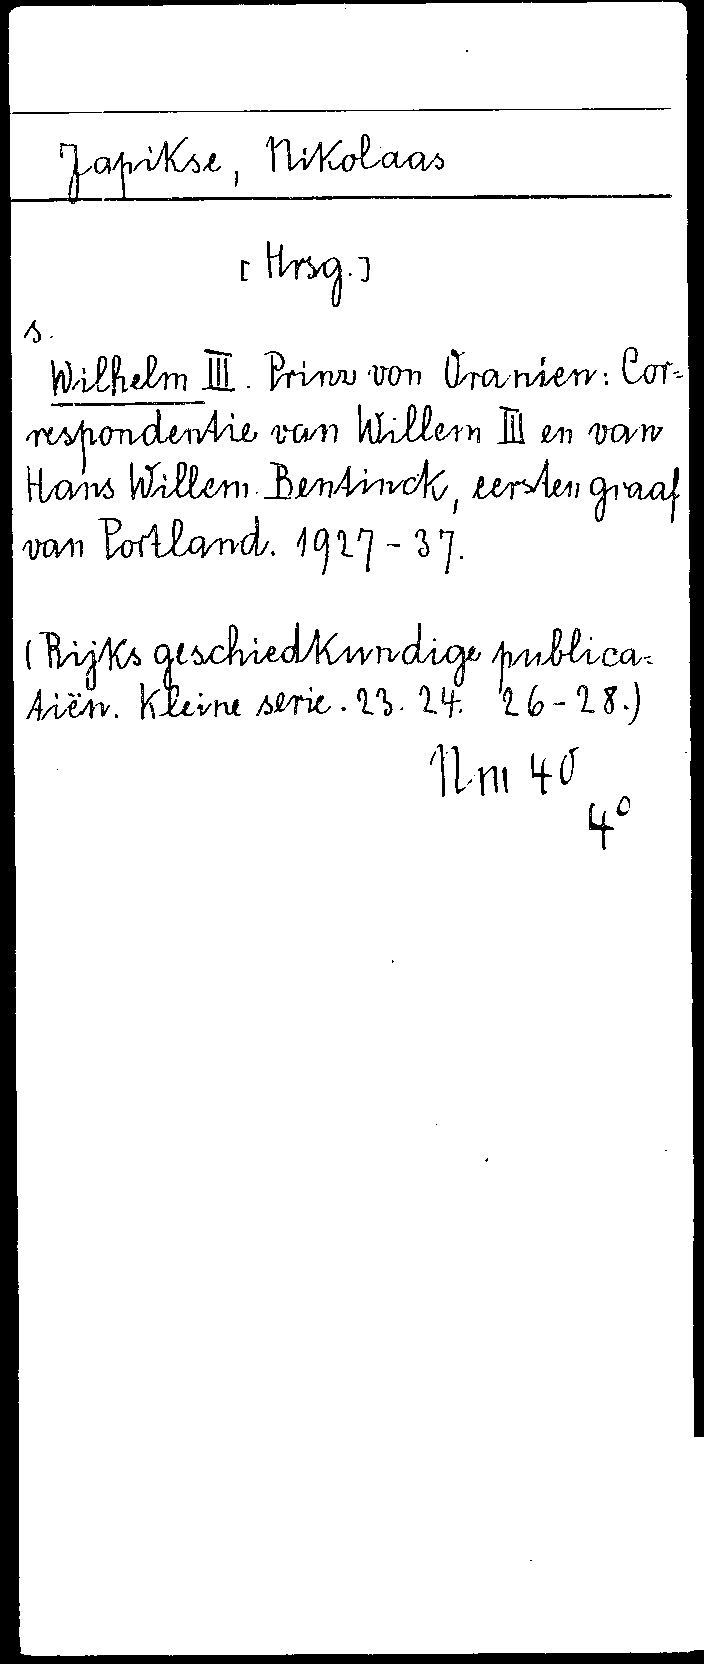 Japikse, Nikolaas
[Hrsg.]
s.
Wilhelm III. Prinz von Oranien: Cor=
respondentie van Willem III en van
Hans Willem Bentinck, eersten graaf
van Portland. 1927-37.
(Rijks geschiedkundige publica=
tiën. Kleine serie. 23. 24. 26-28.)
Nm 40
4°